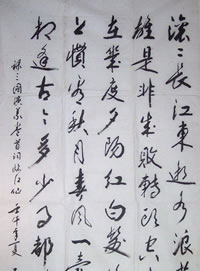 滚滚长江东逝水浪花
雄是非成败转头空
在几度夕阳红白发
上惯看秋月春风一壶
相逢古今多少事都
录三国演义卷首词
壬午年夏